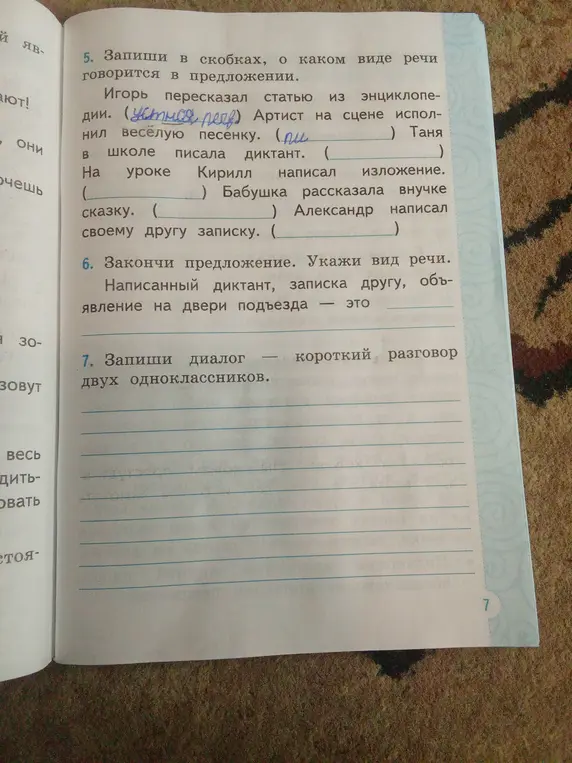 й яв-
ают!
, они
очешь
я зо-
зовут
весь
дить-
овать
стоя-
5. Запиши в скобках, о каком виде речи
говорится в предложении.
Игорь пересказал статью из энциклопе-
дии. (устная реч) Артист на сцене испол-
нил весёлую песенку. (пи) Таня
в школе писала диктант. (____)
На уроке Кирилл написал изложение.
(____) Бабушка рассказала внучке
сказку. (____) Александр написал
своему другу записку. (____)
6. Закончи предложение. Укажи вид речи.
Написанный диктант, записка другу, объ-
явление на двери подъезда — это ____
7. Запиши диалог — короткий разговор
двух одноклассников.
7